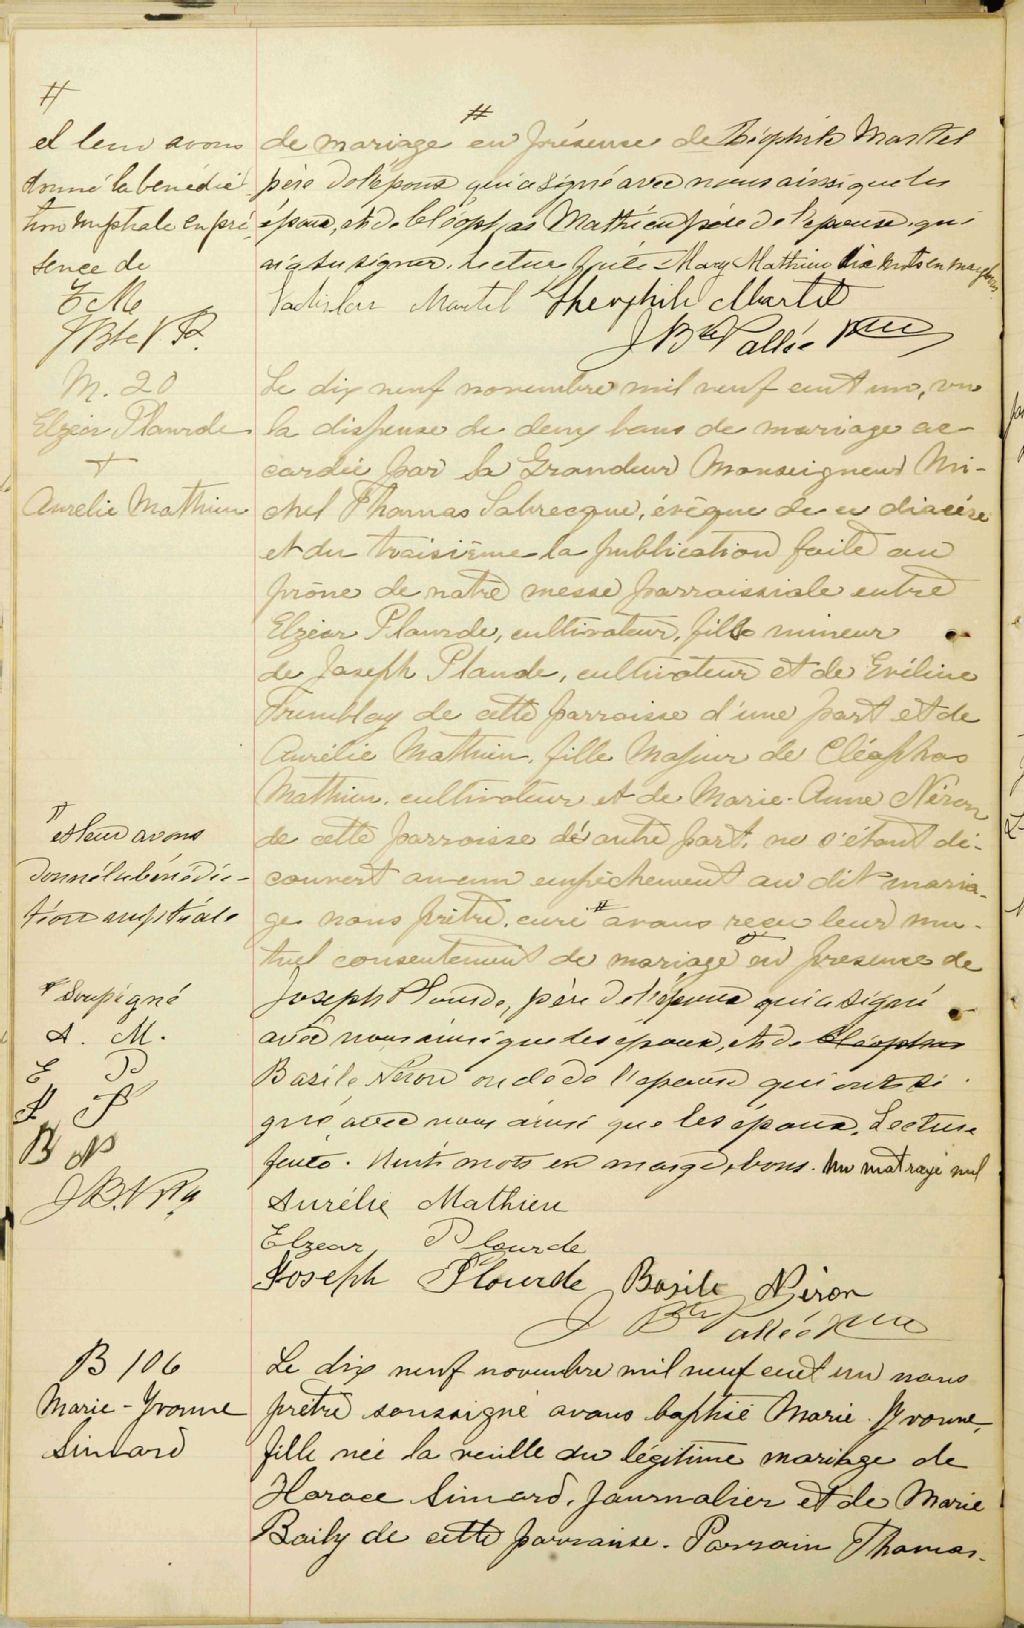 #
et leur avons
donné la bénédic
tion nuptiale en pré
sence de
T M
JBte V P.
de mariage # en présence de Théophile Martel
père de l'epoux qui a signé avec nous ainsi que les
époux, et de Cléophas Mathieu père de l'epouse qui
n'a su signer. Lecture faite Mary Mathieu dix mots en marge bons.
Ladislas Martel Theophile Martel
J Bte Vallée ptre
M. 20
Elzéar Plourde
+
Aurelie Mathieu
Le dix neuf novembre mil neuf cent un, vu
la dispense de deux bans de mariage ac-
cordée par sa Grandeur Monseigneur Mi-
chel Thomas Labrecque, évêque de ce diocèse
et du troisième la publication faite au
prône de notre messe parroissiale entre
Elzéar Plourde, cultivateur, fils mineur
de Joseph Plaude, cultivateur et de Eveline
Tremblay de cette parroisse d'une part et de
Aurélie Mathieu, fille majeur de Cléophas
Mathieu, cultivateur et de Marie-Anne Néron
de cette parroisse d'autre part, ne s'étant dé-
couvert aucun empêchement au dit maria-
ge nous prêtre, curé # avons reçu leur mu-
tuel consentement de mariage # en presence de
Joseph Plourde, père de l'époux qui a signé
avec nous ainsi que les epoux, et de Cléophas
Basile Néron oncle de l'epouse qui ont si
gné avec nous ainsi que les époux. Lecture
faite. Huit mots en marge, bons. Un mot rayé nul
# et leur avons
donné la bénédic-
tion nuptiale
# Soussigné
A. M.
E P
J P
B N
J B. V Ptre
Aurélie Mathieu
Elzear Plourde
Joseph Plourde Basile Néron
J Bte Vallée ptre
B 106
Marie-Yvonne
Simard
Le dix neuf novembre mil neuf cent un nous
prêtre soussigné avons baptisé Marie Yvonne,
fille née la veille du légitime mariage de
Horace Simard, journalier et de Marie
Baily de cette parroisse. Parrain Thomas.